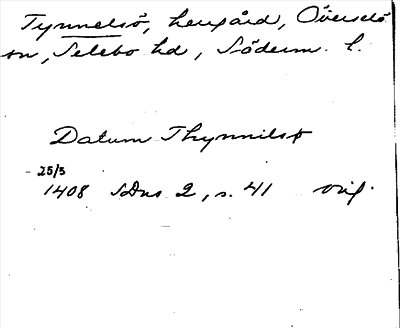 Tynnelsö, herrgård, Överselö
sn, Selebo hd, Söderm. l.
Datum Thynnilsø
25/3
1408 SDns 2, s. 41 orig.